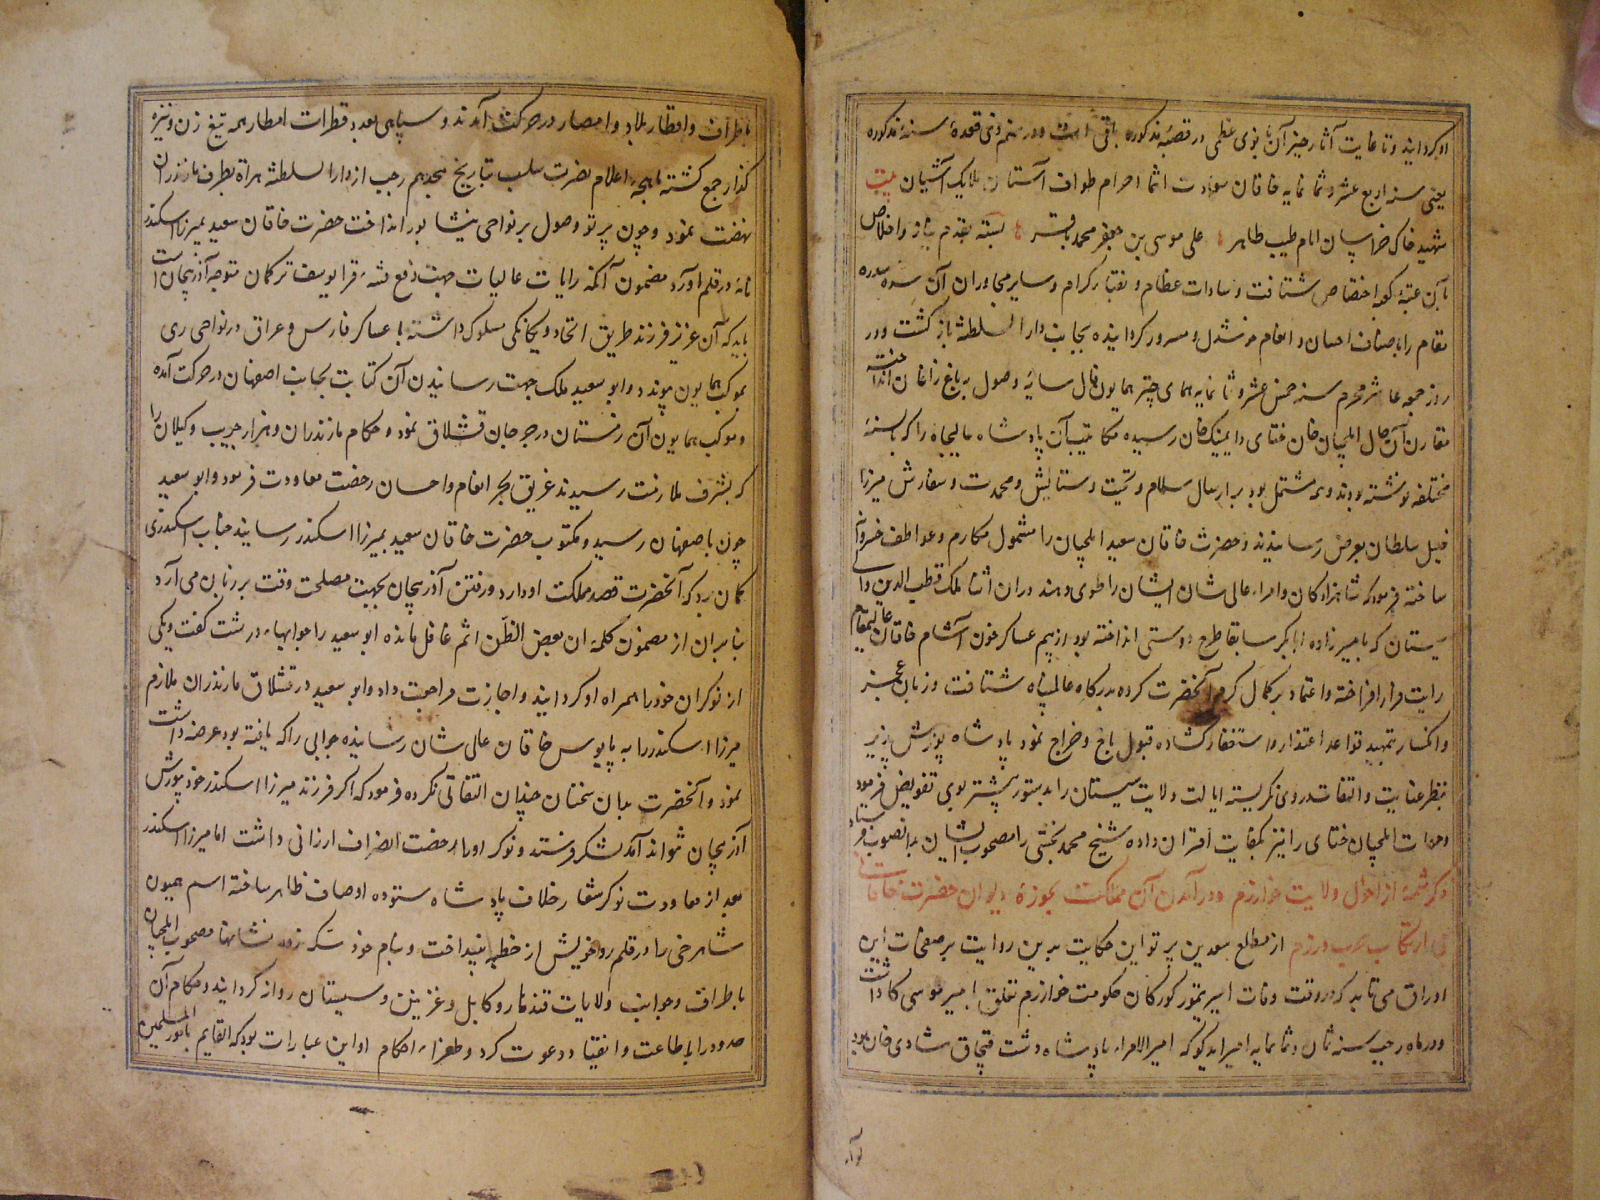 او گردانید و تا غایت آثار خیر آن بانوی عظمی در قصبه مذکوره باقی است و در نهم ذی قعده سنه مذکوره
یعنی سنه اربع عشر و ثمانمایه خاقان سعادت انتما احرام طواف آستان ملایک آشیان
شهید خاک خراسان امام طیب طاهر علی موسی بن جعفر محمد باقر بسته بقدم نیاز و اخلاص
بآن عتبه کعبه اختصاص شتافت و سادات عظام و نقباء کرام و سایر مجاوران آن سده سدره
مقام را باصناف احسان و انعام خوشدل و مسرور گردانیده بجانب دار السلطنه بازگشت و در
روز جمعه عاشر محرم سنه خمس عشر و ثمانمایه همای چتر همایون فال سایه وصول بر باغ زاغان انداخت
مقارن آن حال ایلچیان خان ختای دایمینک خان رسیده مکاتیب آن پادشاه عالیجاه را که بالسنه
مختلفه نوشته بودند و همه مشتمل بود بر ارسال سلام و تحیت و ستایش و محمدت و سفارش میرزا
خلیل سلطان بعرض رسانیدند و حضرت خاقان سعید ایلچیان را مشمول مکارم و عواطف خسروانه
ساخته فرمود که شاهزادگان و امراء عالی شان ایشان را طوی دهند و در آن اثنا ملک قطب الدین والی
سیستان که با میرزاده ابابکر سابقا طرح دوستی انداخته بود از بیم عساکر خون آشام خاقان عالیمقام
رایت فرار افراخته و اعتماد بر کمال کرم آنحضرت کرده بدرگاه عالمپناه شتافت و زبان عجز
و انکسار بتمهید قواعد اعتذار و استغفار گشاده قبول باج و خراج نمود پادشاه پوزش پذیر
بنظر عنایت و التفات در وی نگریسته ایالت ولایت سیستان را بدستور پیشتر بوی تفویض فرمود
و مهمات ایلچیان ختای را نیز بکفایت اقتران داده شیخ محمد بخشی را مصحوب ایشان بدانصوب فرستاد
ذکر شمه از احوال ولایت خوارزم و در آمدن آن مملکت بحوزه دیوان حضرت خاقانی
بی ارتکاب حرب و رزم از مطلع سعدین پرتو این حکایت بدین روایت بر صفحات این
اوراق می تابد که در وقت وفات امیر تیمور گورکان حکومت خوارزم تعلق بامیر موسی کا داشت
و در ماه رجب سنه ثمان و ثمانمایه امیر ایدکو که امیر الامراء پادشاه دشت قبچاق شادی خان بود
باطراف و اقطار بلاد و امصار در حرکت آمدند و سپاهی بعدد قطرات امطار همه تیغ زن و نیزه
گذار جمع گشته ماهچه اعلام نصرت سلب بتاریخ هجدهم رجب از دار السلطنه هراة بطرف مازندران
نهضت نمود و چون پرتو وصول بر نواحی نیشابور انداخت حضرت خاقان سعید بمیرزا اسکندر
نامه در قلم آورد مضمون آنکه رایات عالیات جهت دفع فتنه قرا یوسف ترکمان متوجه آذربیجان است
باید که آن عزیز فرزند طریق اتحاد و یکانگی مسلوک داشته با عساکر فارس و عراق در نواحی ری
بموکب همایون پیوندد و ابو سعید ملک جهت رسانیدن آن کتابت بجانب اصفهان در حرکت آمده
و موکب همایون آن زمستان در جرجان قشلاق نمود و حکام مازندران و هزار جریب و گیلان را
که بشرف ملازمت رسیدند غریق بحر انعام و احسان رخصت معاودت فرمود و ابو سعید
چون باصفهان رسید و مکتوب حضرت خاقان سعید بمیرزا اسکندر رسانید جناب اسکندری
گمان برد که آنحضرت قصد مملکت او دارد و رفتن آذربیجان بجهت مصلحت وقت بر زبان می آرد
بنابران از مضمون کلمه ان بعض الظن اثم غافل مانده ابو سعید را جوابهاء درشت گفت و یکی
از نوکران خود را همراه او گردانید و اجازت مراجعت داد و ابو سعید در قشلاق مازندران ملازم
میرزا اسکندر را به پایبوس خاقان عالی شان رسانیده جوابی را که یافته بود عرضه داشت
نمود و آنحضرت بدان سخنان چندان التفاتی نکرده فرمود که اگر فرزند میرزا اسکندر خود بیورش
آذربیجان نتواند آمد لشکر فرستد و نوکر او را رخصت انصراف ارزانی داشت اما میرزا اسکندر
بعد از معاودت نوکر شعار خلاف پادشاه ستوده اوصاف ظاهر ساخته اسم همیون
شاهرخی را در قلمرو خویش از خطبه بینداخت و بنام خود سکه زده نشانها مصحوب ایلچیان
باطراف و جوانب ولایات قندهار و کابل و غزنین و سیستان روانه گردانید و حکام آن
حدود را باطاعت و انقیاد دعوت کرد و طغراء احکام او این عبارات بود که القایم بامور المسلمین